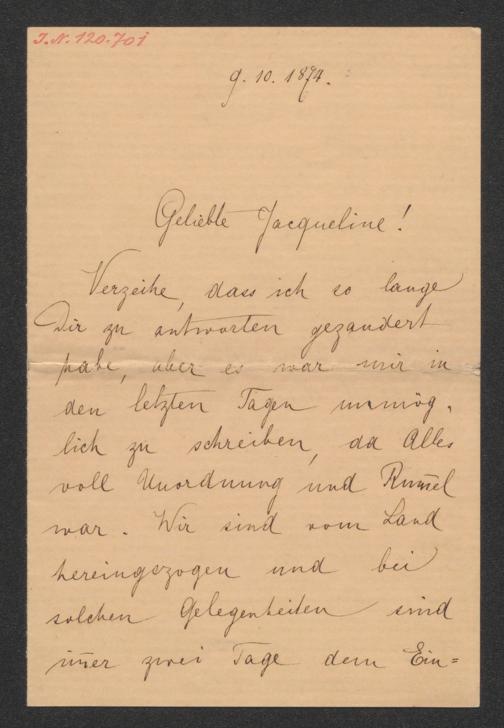 J.N. 120.701
9. 10. 1874.
Geliebte Jacqueline!
Verzeihe, dass ich so lange
Dir zu antworten gezaudert
habe, aber es war mir in
den letzten Tagen unmög-
lich zu schreiben, da Alles
voll Unordnung und Rum̄el
war. Wir sind vom Land
hereingezogen und bei
solchen Gelegenheiten sind
im̄er zwei Tage dem Ein=